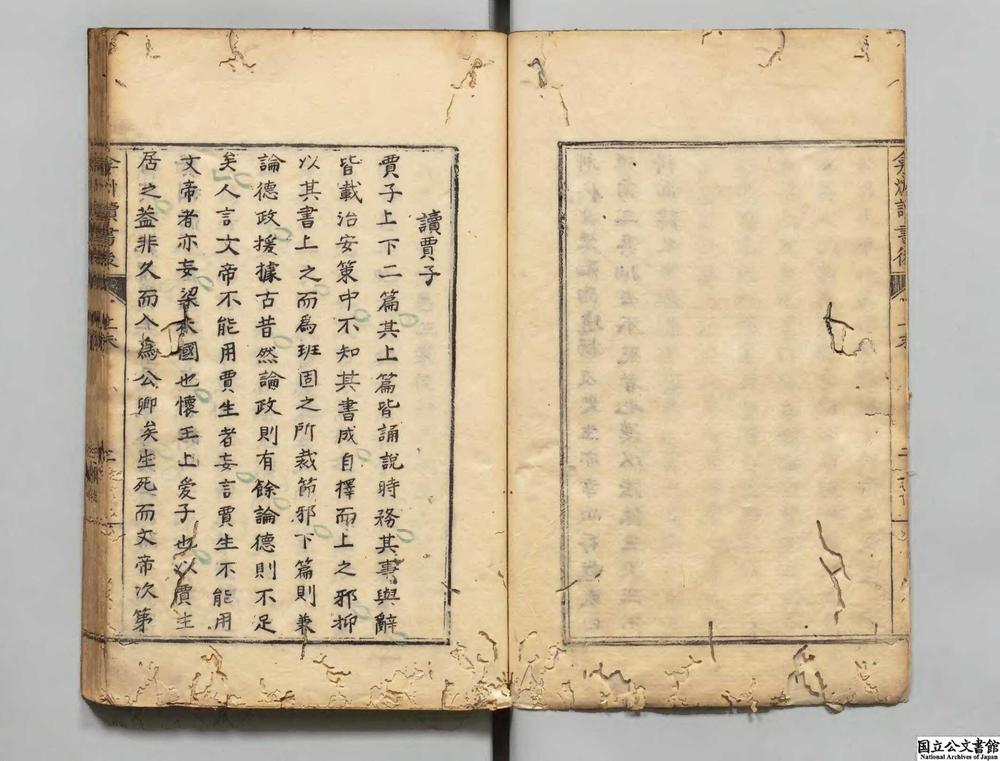 讀賈子
賈子上下二篇其上篇皆誦說時務其事與辭
皆載治安策中不知其書成自擇而上之邪抑
以其書上之而爲班固之所裁節邪下篇則兼
論德政援據古昔然論政則有餘論德則不足
矣人言文帝不能用賈生者妄言賈生不能用
文帝者亦妄梁大國也懷王上愛子也以賈生
居之葢非久而入爲公卿矣生死而文帝次第
弇州讀書後
国立公文書館
National Archives of Japan